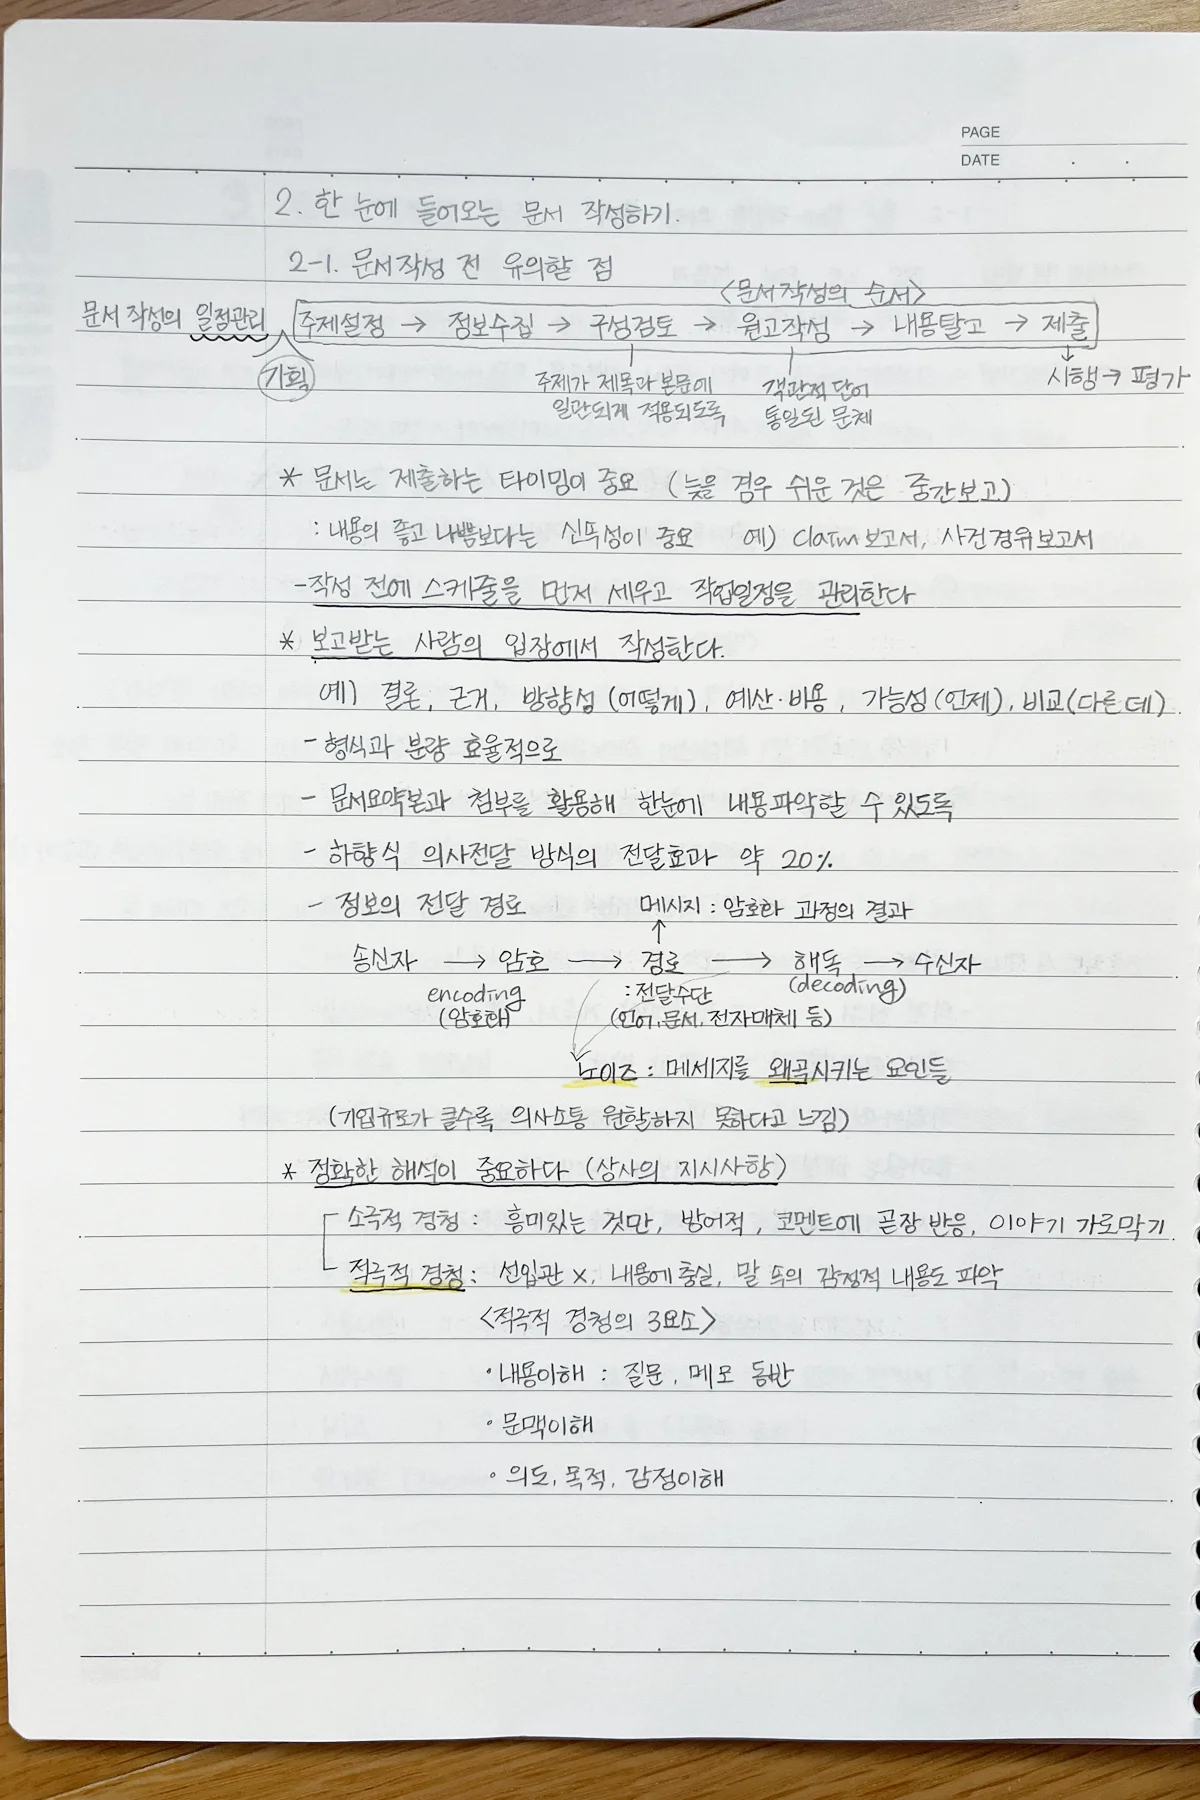 PAGE
DATE
2. 한 눈에 들어오는 문서 작성하기.
2-1. 문서작성 전 유의할 점
<문서작성의 순서>
문서작성의 일정관리 주제설정 → 정보수집 → 구성검토 → 원고작성 → 내용탈고 → 제출
기획 주제가 제목과 본문에 객관적 단어 시행 → 평가
일관되게 적용되도록 통일된 문체
* 문서는 제출하는 타이밍이 중요 (늦을 경우 쉬운 것은 중간보고)
: 내용의 좋고 나쁨보다는 신뚝성이 중요 예) Claim 보고서, 사건경위보고서
- 작성 전에 스케줄을 먼저 세우고 작업일정을 관리한다
* 보고받는 사람의 입장에서 작성한다.
예) 결론, 근거, 방향성 (어떻게), 예산·비용, 가능성(언제), 비교(다른 데)
- 형식과 분량 효율적으로
- 문서요약본과 첨부를 활용해 한눈에 내용파악할 수 있도록
- 하향식 의사전달 방식의 전달효과 약 20%
- 정보의 전달 경로 메시지 : 암호화 과정의 결과
송신자 → 암호 → 경로 → 해독 → 수신자
encoding : 전달수단 (decoding)
(암호화) (언어, 문서, 전자매체 등)
노이즈 : 메세지를 왜곡시키는 요인들
(기업규모가 클수록 의사소통 원활하지 못하다고 느낌)
* 정확한 해석이 중요하다 (상사의 지시사항)
소극적 경청 : 흥미있는 것만, 방어적, 코멘트에 곧장 반응, 이야기 가로막기
적극적 경청 : 선입관 x, 내용에 충실, 말 속의 감정적 내용도 파악
<적극적 경청의 3요소>
· 내용이해 : 질문, 메모 동반
· 문맥이해
· 의도, 목적, 감정이해